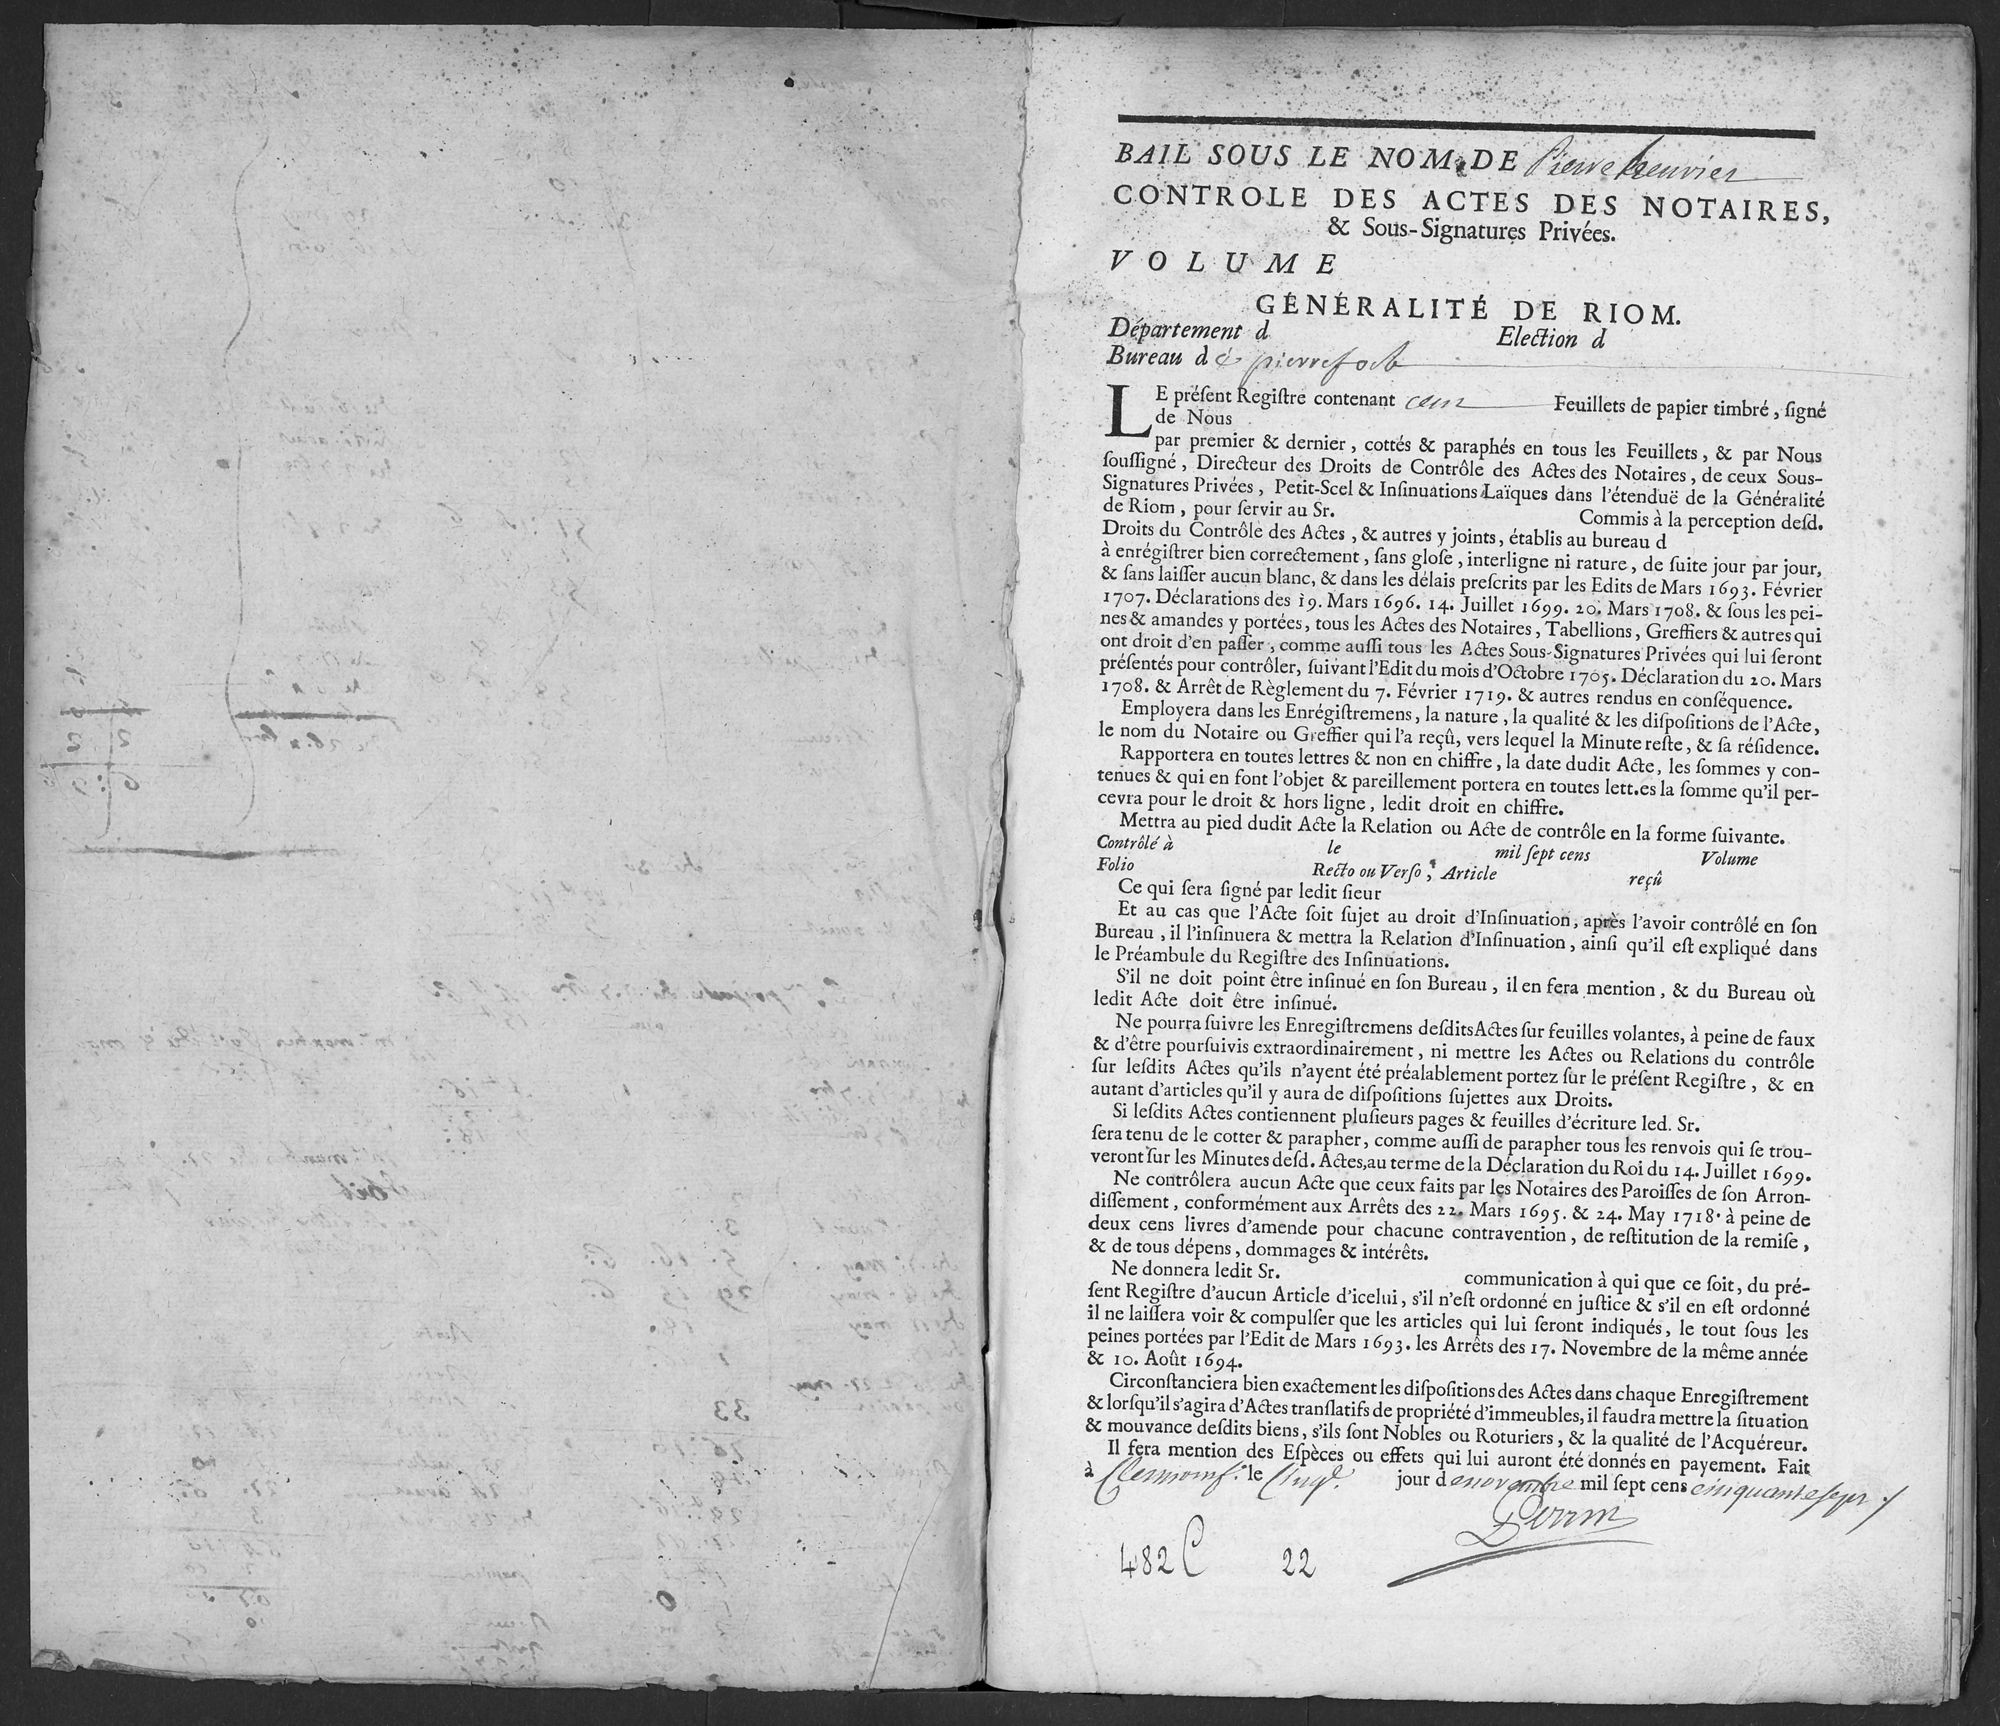 BAIL SOUS LE NOM DE Pierre henrier
CONTROLE DES ACTES DES NOTAIRES,
& Sous-Signatures Privées.
VOLUME
GÉNÉRALITÉ DE RIOM.
Département d Election d
Bureau d e pierrefort
LE préſent Regiſtre contenant cent Feuillets de papier timbré, ſigné
de Nous
par premier & dernier, cottés & paraphés en tous les Feuillets, & par Nous
ſouſſigné, Directeur des Droits de Contrôle des Actes des Notaires, de ceux Sous-
Signatures Privées, Petit-Scel & Inſinuations Laïques dans l'étenduë de la Généralité
de Riom, pour ſervir au Sr. Commis à la perception deſd.
Droits du Contrôle des Actes, & autres y joints, établis au bureau d
à enrégiſtrer bien correctement, ſans gloſe, interligne ni rature, de ſuite jour par jour,
& ſans laiſſer aucun blanc, & dans les délais preſcrits par les Edits de Mars 1693. Février
1707. Déclarations des 19. Mars 1696. 14. Juillet 1699. 20. Mars 1708. & ſous les pei-
nes & amandes y portées, tous les Actes des Notaires, Tabellions, Greffiers & autres qui
ont droit d'en paſſer, comme auſſi tous les Actes Sous-Signatures Privées qui lui ſeront
préſentés pour contrôler, ſuivant l'Edit du mois d'Octobre 1705. Déclaration du 20. Mars
1708. & Arrêt de Règlement du 7. Février 1719. & autres rendus en conſéquence.
Employera dans les Enrégiſtremens, la nature, la qualité & les diſpoſitions de l'Acte,
le nom du Notaire ou Greffier qui l'a reçû, vers lequel la Minute reſte, & ſa réſidence.
Rapportera en toutes lettres & non en chiffre, la date dudit Acte, les ſommes y con-
tenues & qui en font l'objet & pareillement portera en toutes lett.es la ſomme qu'il per-
cevra pour le droit & hors ligne, ledit droit en chiffre.
Mettra au pied dudit Acte la Relation ou Acte de contrôle en la forme ſuivante.
Contrôlé à le mil ſept cens Volume
Folio Recto ou Verſo, Article reçû
Ce qui ſera ſigné par ledit ſieur
Et au cas que l'Acte ſoit ſujet au droit d'Inſinuation, après l'avoir contrôlé en ſon
Bureau, il l'inſinuera & mettra la Relation d'Inſinuation, ainſi qu'il eſt expliqué dans
le Préambule du Regiſtre des Inſinuations.
S'il ne doit point être inſinué en ſon Bureau, il en fera mention, & du Bureau où
ledit Acte doit être inſinué.
Ne pourra ſuivre les Enregiſtremens deſdits Actes ſur feuilles volantes, à peine de faux
& d'être pourſuivis extraordinairement, ni mettre les Actes ou Relations du contrôle
ſur leſdits Actes qu'ils n'ayent été préalablement portez ſur le préſent Regiſtre, & en
autant d'articles qu'il y aura de diſpoſitions ſujettes aux Droits.
Si leſdits Actes contiennent pluſieurs pages & feuilles d'écriture led. Sr.
ſera tenu de le cotter & parapher, comme auſſi de parapher tous les renvois qui ſe trou-
veront ſur les Minutes deſd. Actes, au terme de la Déclaration du Roi du 14. Juillet 1699.
Ne contrôlera aucun Acte que ceux faits par les Notaires des Paroiſſes de ſon Arron-
diſſement, conformément aux Arrêts des 22. Mars 1695. & 24. May 1718. à peine de
deux cens livres d'amende pour chacune contravention, de reſtitution de la remiſe,
& de tous dépens, dommages & intérêts.
Ne donnera ledit Sr. communication à qui que ce ſoit, du pré-
ſent Regiſtre d'aucun Article d'icelui, s'il n'eſt ordonné en juſtice & s'il en eſt ordonné
il ne laiſſera voir & compulſer que les articles qui lui ſeront indiqués, le tout ſous les
peines portées par l'Edit de Mars 1693. les Arrêts des 17. Novembre de la même année
& 10. Août 1694.
Circonſtanciera bien exactement les diſpoſitions des Actes dans chaque Enregiſtrement
& lorſqu'il s'agira d'Actes tranſlatifs de propriété d'immeubles, il faudra mettre la ſituation
& mouvance deſdits biens, s'ils ſont Nobles ou Roturiers, & la qualité de l'Acquéreur.
Il fera mention des Eſpèces ou effets qui lui auront été donnés en payement. Fait
à Clermont le Cinq jour d e novembre mil ſept cens cinquante sept
Perrin
482 C 22